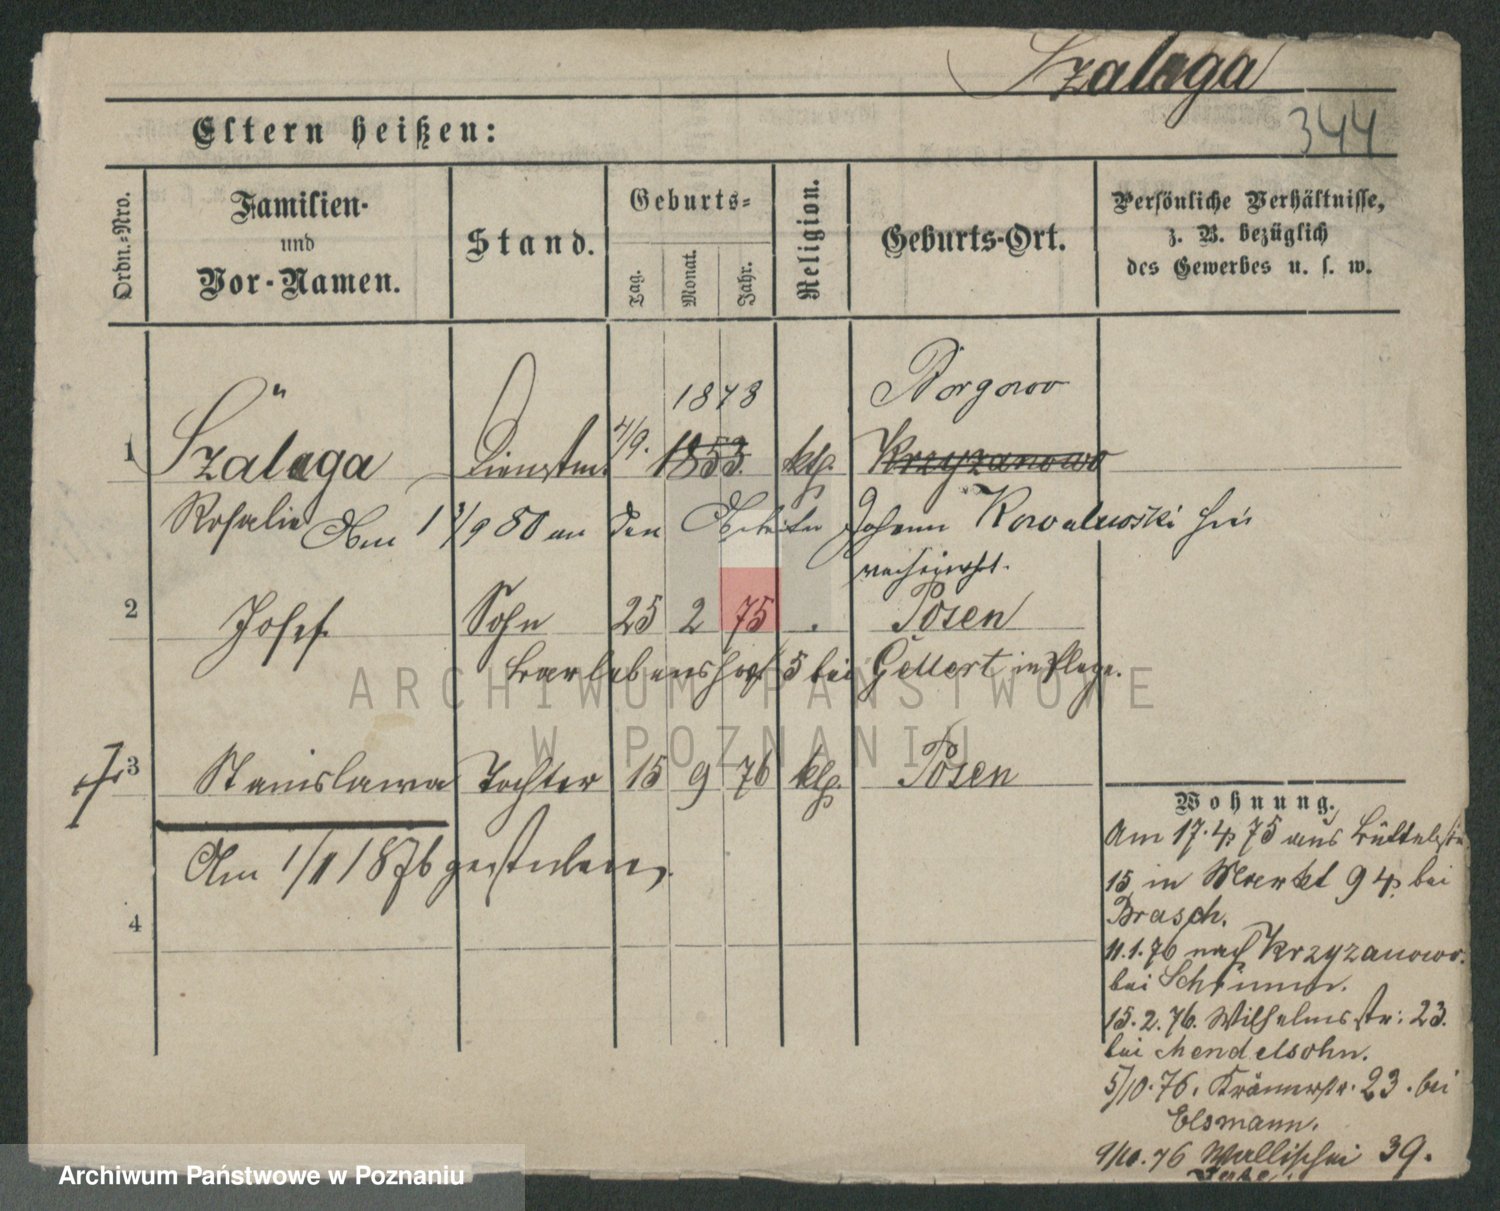 Szalega
344
Eltern heißen:
Ordn.-Nro.
Familien-
und
Vor-Namen.
Stand.
Geburts-
Tag.
Monat.
Jahr.
Religion.
Geburts-Ort.
Persönliche Verhältnisse,
z. B. bezüglich
des Gewerbes u. s. w.
1878
Borgowo
1 Szalaga Dienstm. 4/9. 1853. kth. Krzyzanowo
Rosalie Am 13/9 80 an den Arbeiter Johann Kowalewski hier
verheirathet.
2 Josef Sohn 25 2 75 Posen
5 bei Gellert in Pflege.
3 Stanislawa Tochter 15 9 76 kth. Posen
Am 1/11 1876 gestorben.
4
Wohnung.
Am 17.4. 75 aus Büttelstr.
15 in Markt 94 bei
Brasch.
11.1.76 nach Krzyzanowo.
bei Schimm.
15.2.76. Wilhelmsstr: 23.
bei Mendelsohn.
5/10.76. Krämerstr. 23. bei
Elsmann.
9/10.76 Wallischei 39.
ARCHIWUM PAŃSTWOWE
W POZNANIU
Archiwum Państwowe w Poznaniu